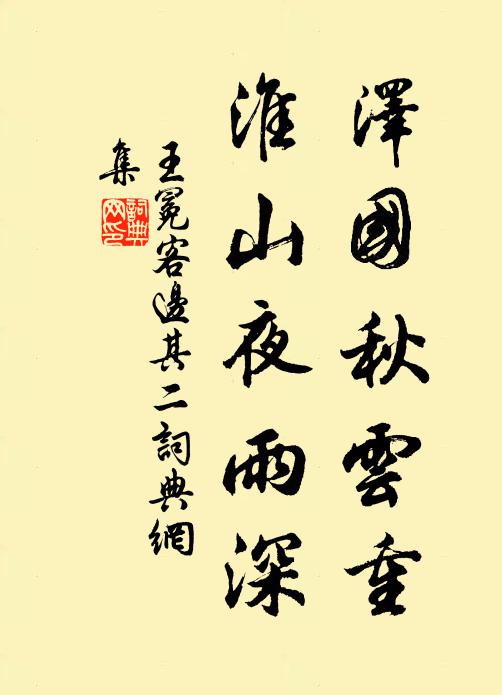 澤國秋雲重
淮山夜雨深
王冕客邊其二詞典網
集
詞典网印